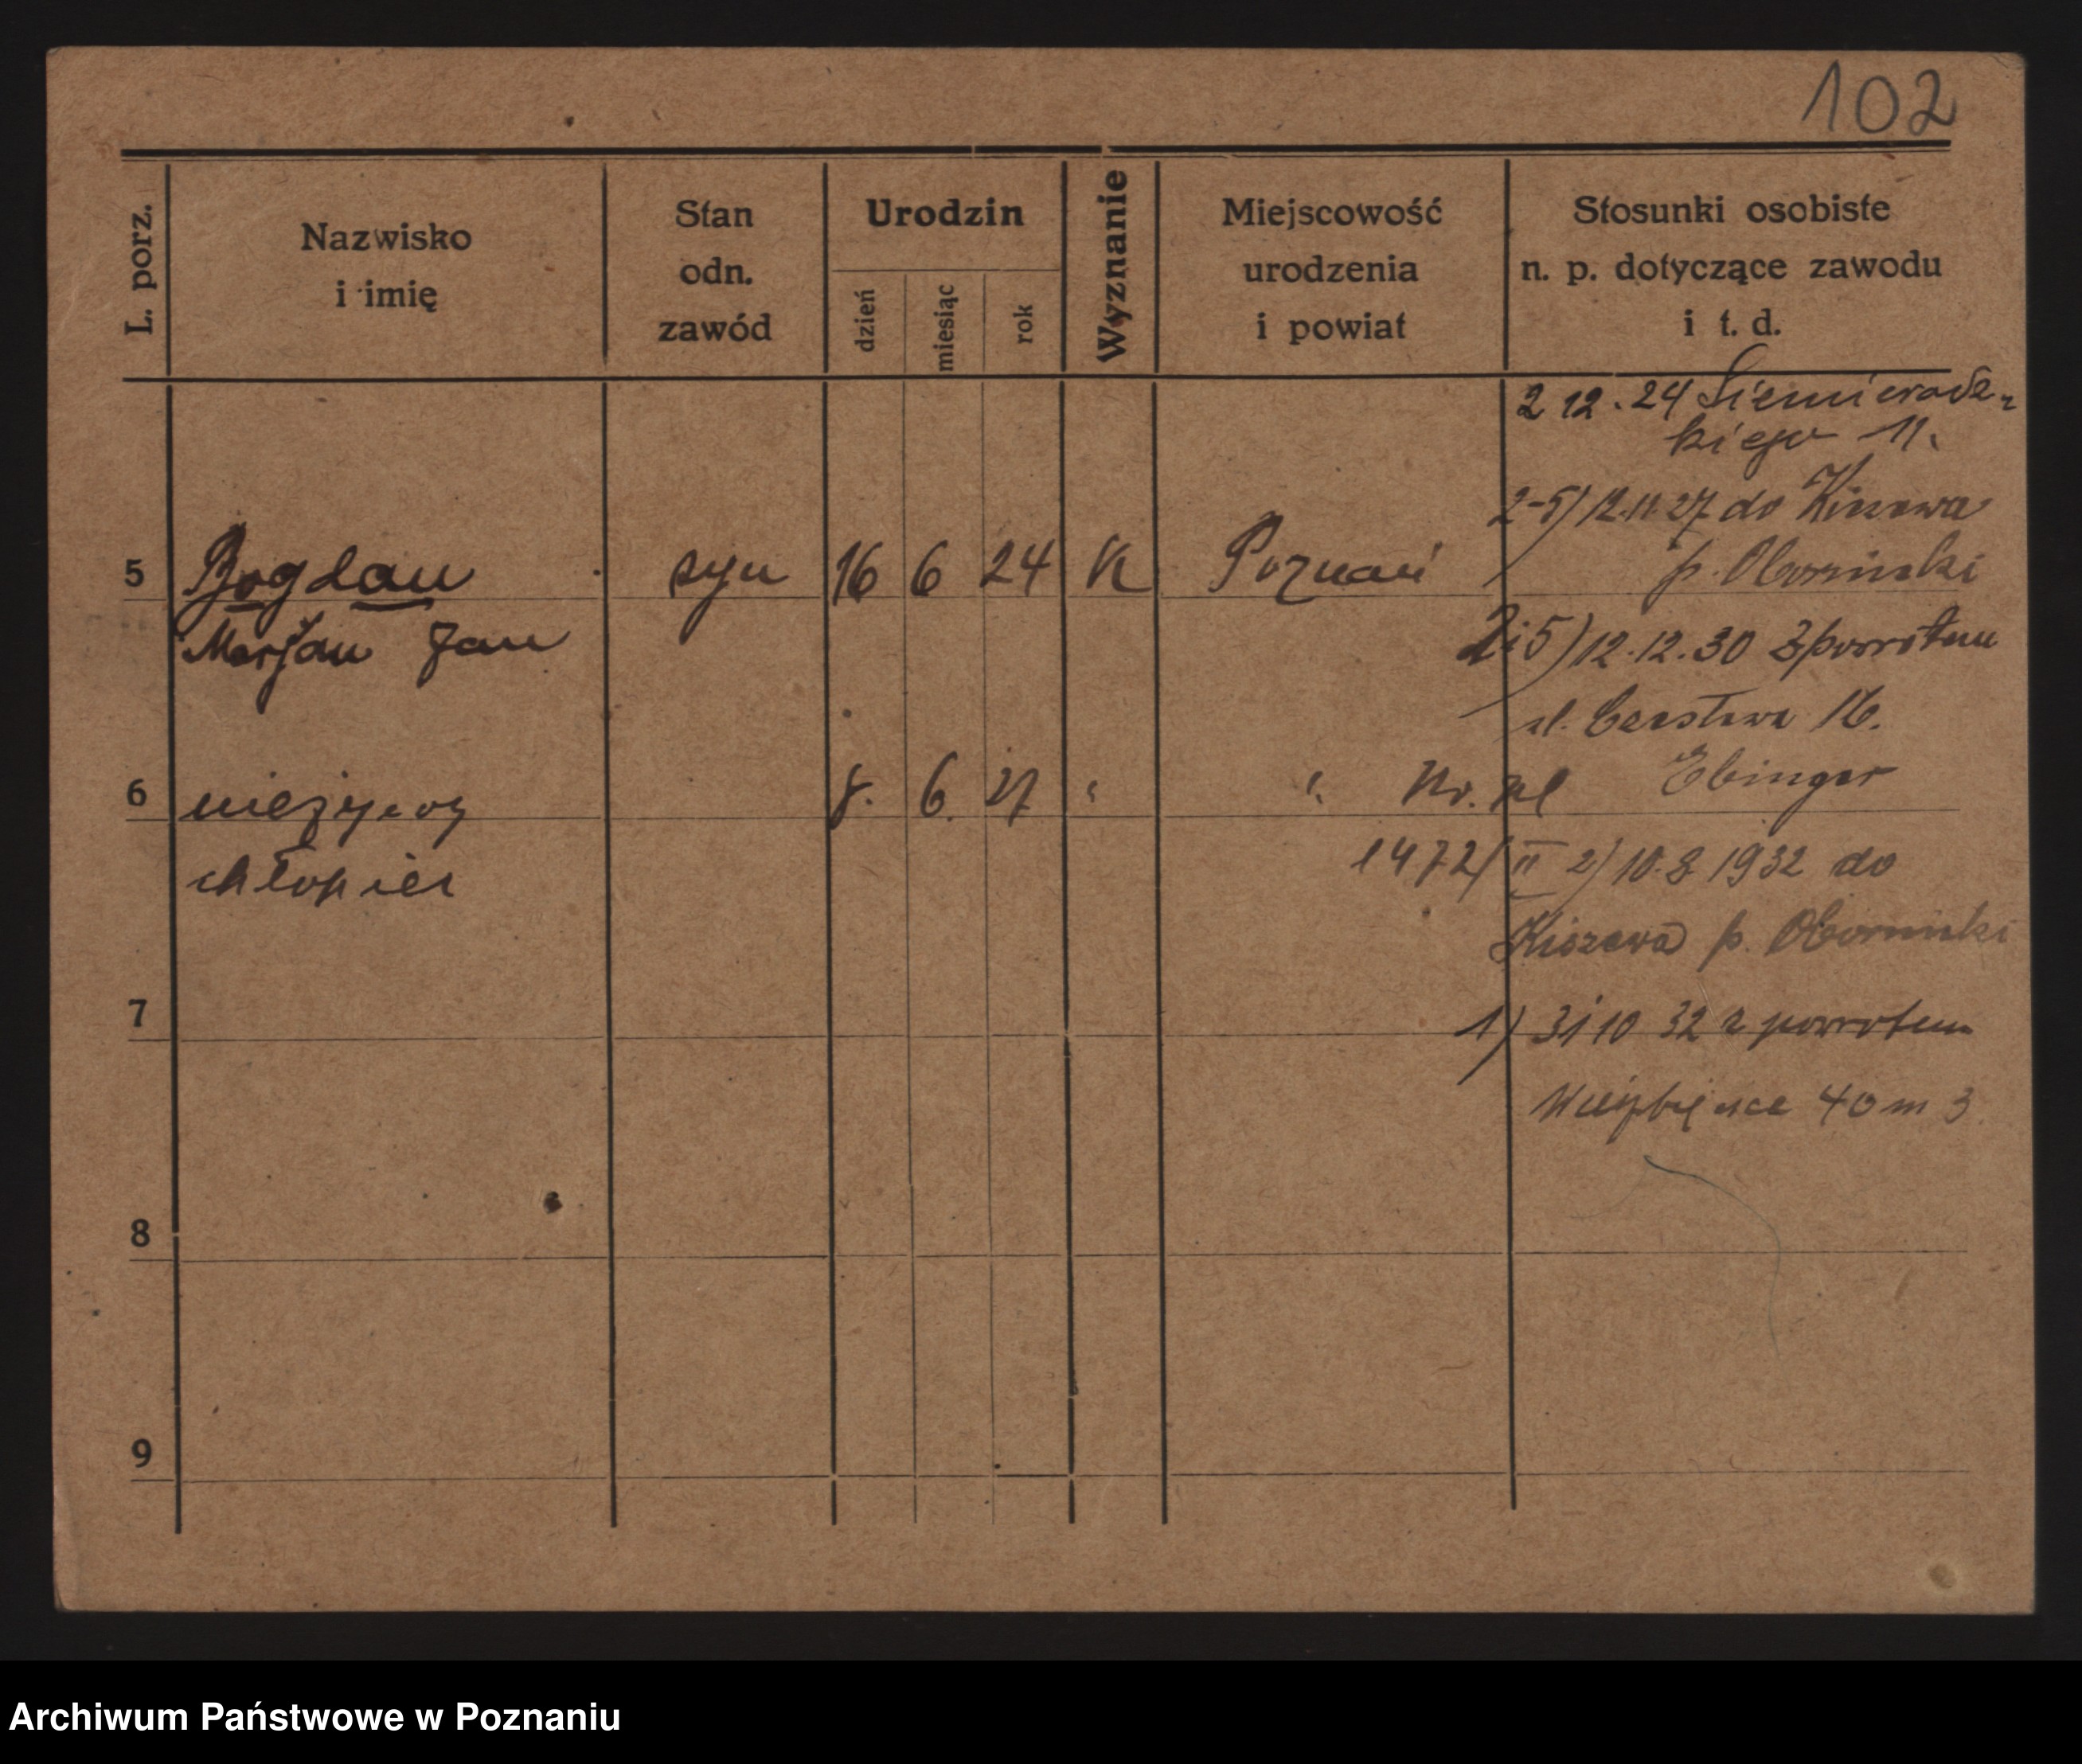 102
L. porz.
Nazwisko
i imię
Stan
odn.
zawód
Urodzin
dzień
miesiąc
rok
Wyznanie
Miejscowość
urodzenia
i powiat
Stosunki osobiste
n. p. dotyczące zawodu
i t. d.
2 12. 24 Siemieradz-
kiego 11.
2-5) 12.11.27 do Kiszewa
p. Oborniki
5 Bogdan syn 16 6 24 K Poznań
Marjan Jan
2i5) 12.12.30 z powrotem
ul. Czesława 16.
Ebinger
6 nieżywy 8. 6. 27 " " Nr. pl
chłopiec
1472/II 2) 10.8 1932 do
Kiszewa p. Oborniki
7
1) 31 10 32 z powrotem
40 m 3.
8
9
Archiwum Państwowe w Poznaniu